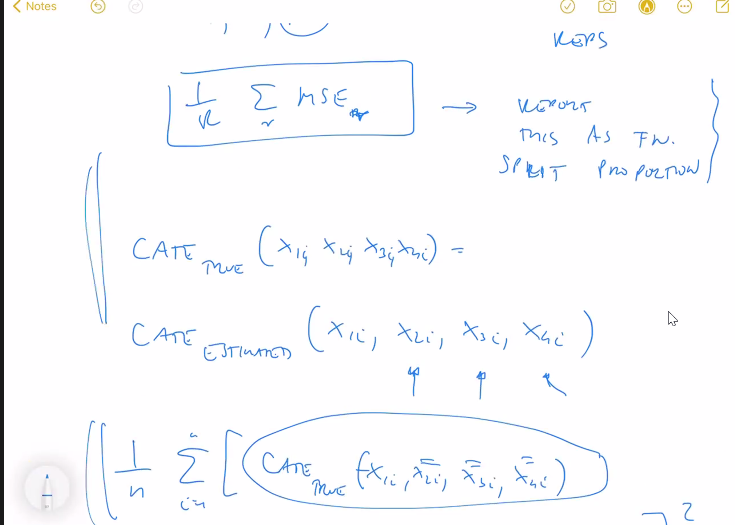 Notes
REPS
1/R Σ_r MSE_r → REPORT
THIS AS FN.
SPLIT PROPORTION
CATE_TRUE (X_1i, X_2i, X_3i, X_4i) =
CATE_ESTIMATED (X_1i, X_2i, X_3i, X_4i)
1/n Σ_{i=1}^n [ CATE_TRUE (X_1i, X_2i, X_3i, X_4i)
]²